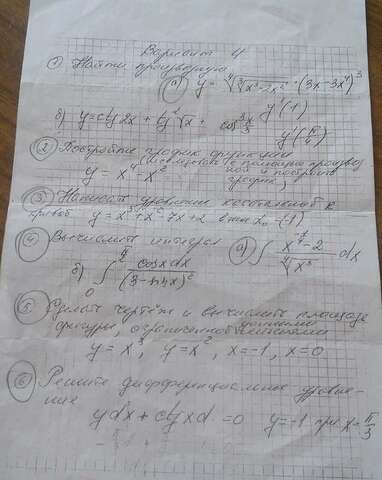 Вариант 4
① Найти производную
а) y = ∜(∛x³ - 2x² · (3x - 3x⁴)³
y'(1)
б) y = ctg 2x + tg²√x + cos³ x/3
y'(π/4)
② Постройте график функции
(исследовать с помощью производ
ной и построить
график)
y = x⁴ - x²
③ Написать уравнение касательной к
кривой y = x³ + x² - 7x + 2 x₀ = (-1)
④ Вычислить интеграл
а) ∫ dx
б) ∫ cosx dx / (3 - sinx)²
0
⑤ Сделать чертёж и вычислить площадь
фигуры, ограниченной линиями
y = x³, y = x², x = -1, x = 0
⑥ Решите дифференциальное уравне-
ние
ydx + ctgxd = 0 y = -1 при x = π/3